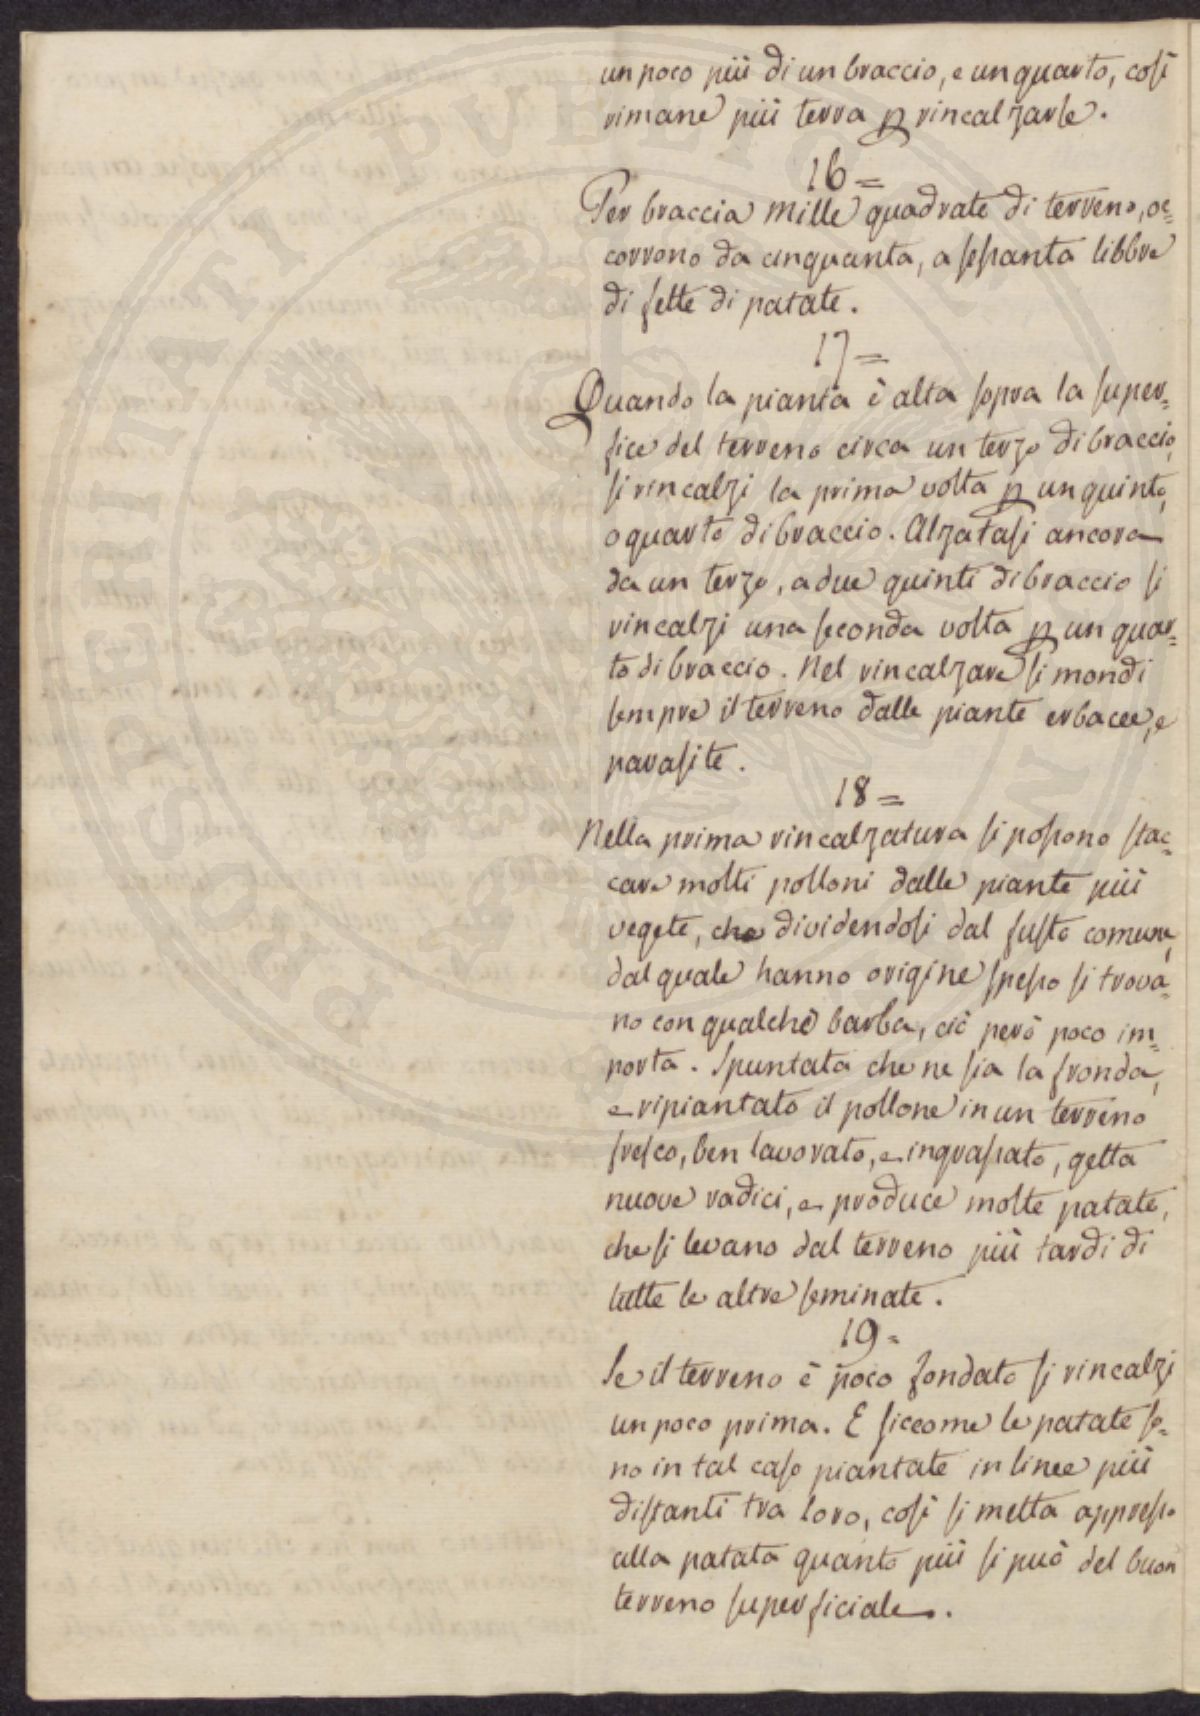 un poco più di un braccio, e un quarto, così
rimane più terra p rincalzarle.
16=
Per braccia mille quadrate di terreno, oc=
corrono da cinquanta, a sessanta libbre
di fette di patate.
17=
Quando la pianta è alta sopra la super=
fice del terreno circa un terzo di braccio,
si rincalzi la prima volta p un quinto,
o quarto di braccio. Alzatasi ancora
da un terzo, a due quinti di braccio si
rincalzi una seconda volta p un quar=
to di braccio. Nel rincalzare si mondi
sempre il terreno dalle piante erbacee, e
parasite.
18=
Nella prima rincalzatura si possono stac=
care molti polloni dalle piante più
vegete, che dividendosi dal fusto comune,
dal quale hanno origine spesso si trova=
no con qualche barba, ciò però poco im=
porta. Spuntata che ne sia la fronda,
e ripiantato il pollone in un terreno
fresco, ben lavorato, e ingrassato, getta
nuove radici, e produce molte patate,
che si levano dal terreno più tardi di
tutte le altre seminate.
19=
Se il terreno è poco fondato si rincalzi
un poco prima. E siccome le patate so=
no in tal caso piantate in linee più
distanti tra loro, così si metta appresso
alla patata quanto più si può del buon
terreno superficiale.